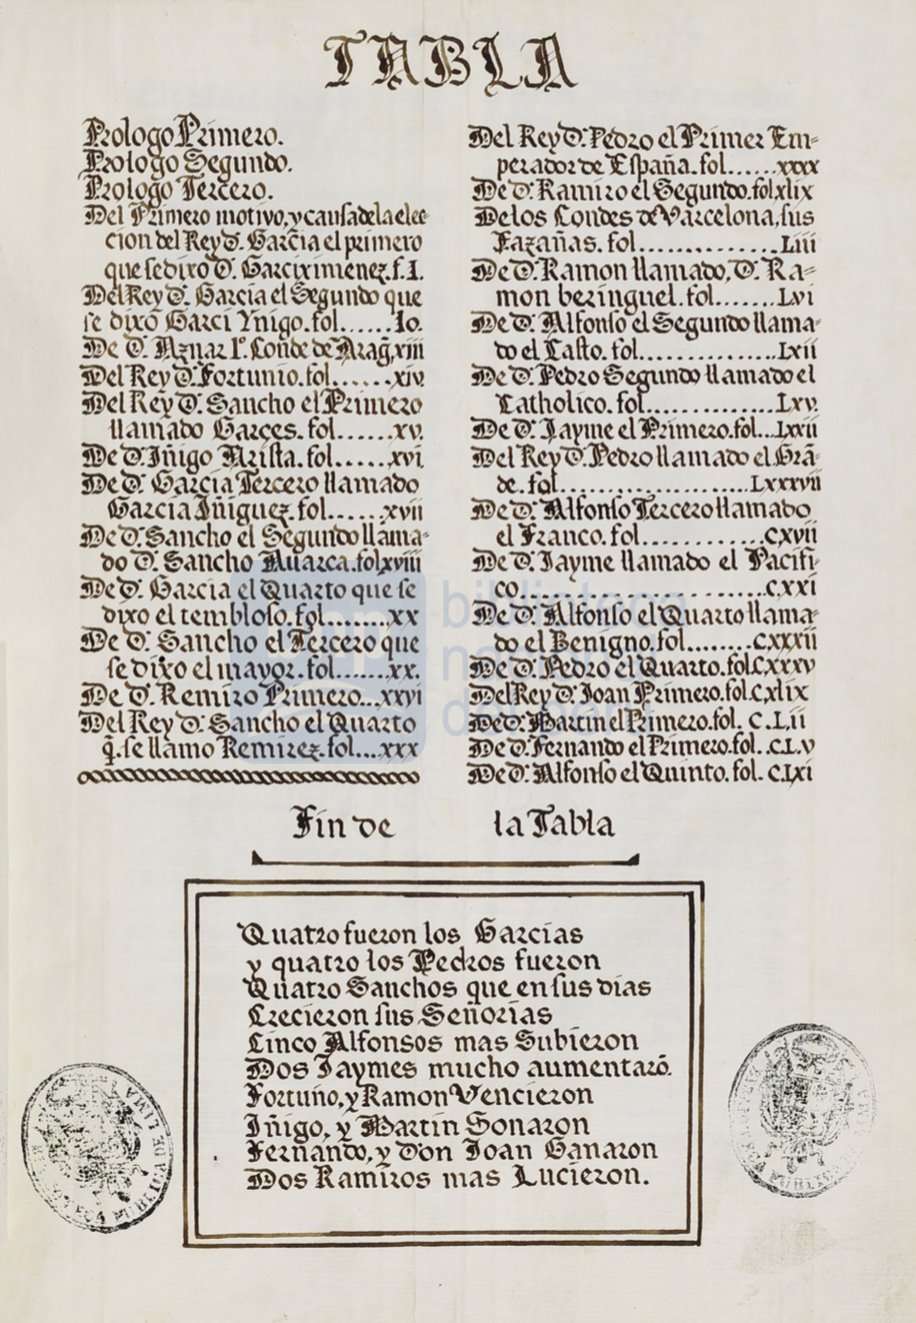 TABLA
Prologo Primero.
Prologo Segundo.
Prologo Tercero.
Del Primero motivo, y causa de la elec
cion del Rey D. Garcia el primero
que se dixo D. Garci ximenez. f. I.
Del Rey D. Garcia el Segundo que
se dixo Garci Ynigo. fol......10.
De D. Aznar 1º. Conde de Arag̃. xiii
Del Rey D. Fortunio. fol......xiv.
Del Rey D. Sancho el Primero
llamado Garces. fol......xv.
De D. Iñigo Arista. fol.....xvi
De D. Garcia Tercero llamado
Garcia Iñiguez. fol.....xvii
De D. Sancho el Segundo llama-
do D. Sancho Auarca. fol xviii
De D. Garcia el Quarto que se
dixo el tembloso. fol........xx
De D. Sancho el Tercero que
se dixo el mayor. fol......xx.
De D. Remiro Primero...xxvi
Del Rey D. Sancho el Quarto
q̃. se llamo Remirez. fol...xxx
Del Rey D. Pedro el Primer Em-
perador de España. fol......xxx
De D. Ramiro el Segundo. fol xlix
De los Condes de Varcelona, sus
Fazañas. fol..............Liii
De D. Ramon llamado, D. Ra-
mon beringuel. fol.......Lvi
De D. Alfonso el Segundo llama-
do el Casto. fol..............Lxii
De D. Pedro Segundo llamado el
Catholico. fol..............Lxv.
De D. Jayme el Primero. fol...Lxxii
Del Rey D. Pedro llamado el Grã-
de. fol....................Lxxxvii
De D. Alfonso Tercero llamado
el Franco. fol.............Cxvii
De D. Jayme llamado el Pacifi-
co..........................C.xxi
De D. Alfonso el Quarto llama-
do el Benigno. fol........Cxxxii
De D. Pedro el Quarto. fol. Cxxxv
Del Rey D. Joan Primero. fol. C.xlix
De D. Martin el Primero. fol. C.Lii
De D. Fernando el Primero. fol. .C.L.v
De D. Alfonso el Quinto. fol. C.Lxi
Fin de la Tabla
Quatro fueron los Garcias
y quatro los Pedros fueron
Quatro Sanchos que en sus dias
Crecieron sus Señorias
Cinco Alfonsos mas Subieron
Dos Jaymes mucho aumentarõ.
Fortuño, y Ramon Vencieron
Iñigo, y Martin Sonaron
Fernando, y Don Joan Ganaron
Dos Ramiros mas Lucieron.